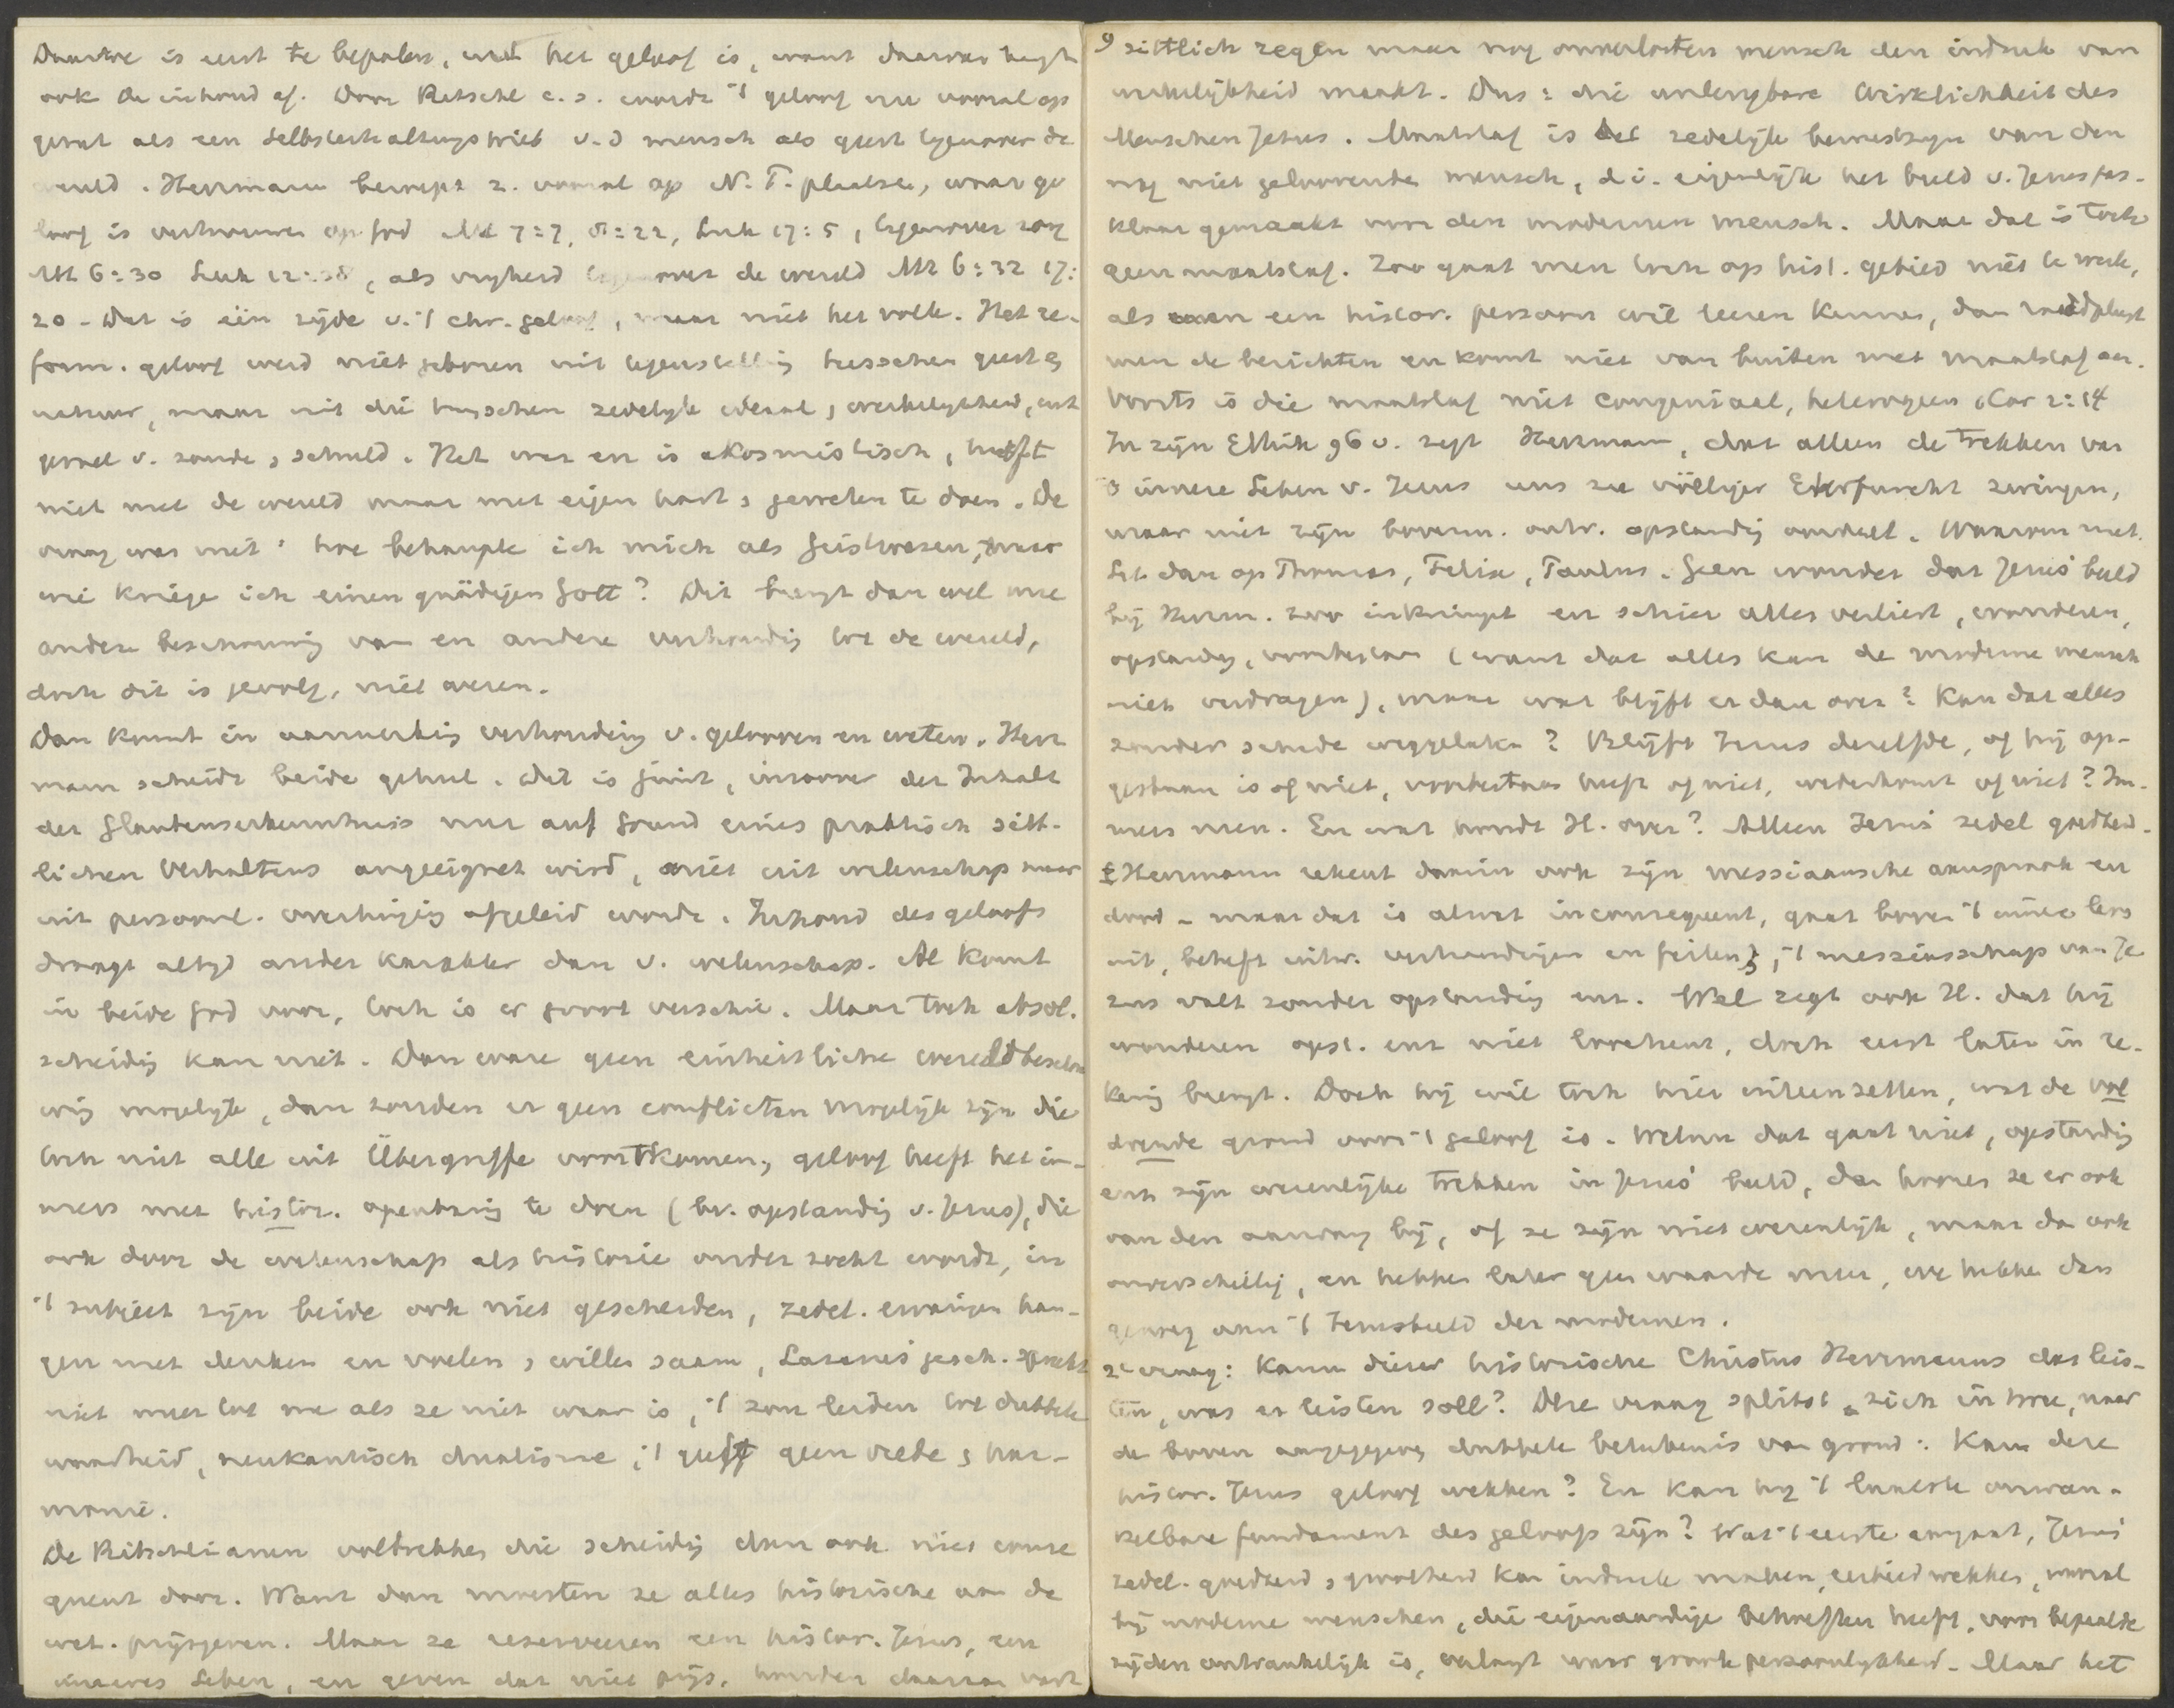 Daartoe is eerst te bepalen, wat het geloof is, want daarvan hangt
ook de inhoud af. Door Ritschl e.s. wordt 't geloof nu vooral op
gevat als een Selbsterhaltungstrieb v.d mensch als geest tegenover de
wereld. Herrmann beroept z. vooral op N.T. plaatsen, waar ge
loof is vertrouwen op God Mt 7:7, 21:22, Luk 17:5, tegenover zorg
Mt 6:30 Luk 12:28, als vrijheid tegenover de wereld Mt 6:32 17:
20 - Dat is één zijde v.'t chr. geloof, maar niet het volle. Het re-
form. geloof werd niet geboren uit tegenstelling tusschen geest en
natuur, maar uit die tusschen zedelijk ideaal, werkelijkheid, uit
gevoel v. zonde, schuld. Het was en is akosmistisch, heeft
niet met de wereld maar met eigen hart, geweten te doen. De
vraag was niet: hoe behaupte ich mich als Geistwesen, maar
wie kriege ich einen gnädigen Gott? Dit brengt dan wel mee
andere beschouwing van en andere verhouding tot de wereld,
doch dit is gevolg, niet wezen.
Dan komt in aanmerking verhouding v. gelooven en weten. Herr
mann scheidt beide geheel. Dit is juist, in zoover der Inhalt
der Glaubenserkenntniss nur auf Grund eines praktisch sitt-
lichen Verhaltens angeeignet wird, niet uit wetenschap maar
uit persoonl. overtuiging afgeleid wordt. Inhoud des geloofs
draagt altijd ander karakter dan v. wetenschap. Al komt
in beide God voor, toch is er groot verschil. Maar toch absol.
scheiding kan niet. Dan ware geen einheitliche wereldbeschou
wing mogelijk, dan zouden er geen conflicten mogelijk zijn die
toch niet alle uit Übergriffe voortkomen, geloof heeft het im-
mers met histor. openbaring te doen (bv. opstanding v. Jezus), die
ook door de wetenschap als historie onderzocht wordt, in
't subject zijn beide ook niet gescheiden, zedel. ervaringen han-
gen met denken en voelen, willen saam, Lazarus gesch. spreekt
niet meer tot me als ze niet waar is, 't zou leiden tot dubbele
waarheid, neukantisch dualisme, 't geeft geen vrede, har-
monie.
De Ritschlianen voltrekken die scheiding dan ook niet conse
quent door. Want dan moesten ze alles historische aan de
wet. prijsgeven. Maar ze reserveeren een histor. Jezus, een
inneres Leben, en geven dat niet prijs, houden daaraan vast
9 sittlich regen maar nog onverlosten mensch den indruk van
werkelijkheid maakt. Dus: die unleugbare Wirklichkeit des
Menschen Jesus. Maatstaf is het zedelijk bewustzijn van den
nog niet geloovende mensch, d.i. eigenlijk het beeld v. Jezus pas-
klaar gemaakt voor den modernen mensch. Maar dat is toch
geen maatstaf. Zoo gaat men toch op hist. gebied niet te werk,
als men een histor. persoon wil leeren kennen, dan raadpleegt
men de berichten en komt niet van buiten met maatstaf aan.
Voorts is die maatstaf niet congeniaal, heterogeen 1 Cor 2:14
In zijn Ethik 96 v. zegt Herrmann, dat alleen de trekken van
't innere Leben v. Jezus uns zu völliger Ehrfurcht zwingen,
maar niet zijn bovenn. ontv. opstanding oordeelt. Waarom niet.
Let dan op Thomas, Felix, Paulus. Geen wonder dat Jezus' beeld
bij Herrm. zoo inkrimpt en schier alles verliest, wonderen,
opstanding, voorbestaan (want dat alles kan de moderne mensch
niet verdragen), maar wat blijft er dan over? Kan dat alles
zonder schade weggelaten? Blijft Jezus dezelfde, of hij op-
gestaan is of niet, voorbestaan heeft of niet, wederkomt of niet? Im-
mers neen. En wat houdt H. over? Alleen Jezus' zedel goedheid.
± Herrmann rekent daarin ook zijn messiaansche aanspraak en
dood - maar dat is alvast inconsequent, gaat boven 't innere leven
uit, betreft uitw. verhoudingen en feiten, 't messiasschap van Je
zus valt zonder opstanding enz. Wel zegt ook H. dat hij
wonderen opst. enz niet loochent, doch eerst later in re-
kening brengt. Doch hij wil toch hier uiteenzetten, wat de vol
doende grond voor 't geloof is. Welnu dat gaat niet, opstanding
enz zijn wezenlijke trekken in Jezus' beeld, dan hooren ze er ook
van den aanvang bij, of ze zijn niet wezenlijk, maar dan ook
onverschillig, en hebben later geen waarde meer, we hebben dan
genoeg aan 't Jezusbeeld der modernen.
2e vraag: Kann dieser historische Christus Herrmanns das leis-
ten, was er leisten soll? Deze vraag splitst zich in twee, naar
de boven aangegeven dubbele beteekenis van grond: Kan deze
histor. Jezus geloof wekken? En kan hij 't laatste onwan-
kelbare fundament des geloofs zijn? Wat 't eerste aangaat, Jezus'
zedel. goedheid, grootheid kan indruk maken, eerbied wekken, vooral
bij moderne menschen, die eigenaardige behoeften heeft, voor bepaalde
zijden ontvankelijk is, verlangt naar groote persoonlijkheid. Maar het